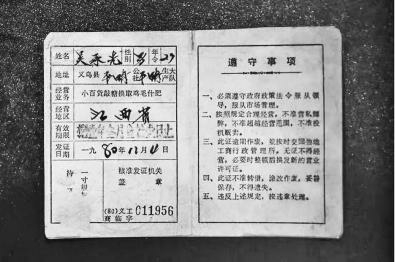 姓名 吴永光 性别 男 年令 29
地址 义乌县 平畴 公社 平畴 生产大队
经营业务 小百货敲糖换取鸡毛什肥
经营地区 江西省
有效期限
发证日期 一九80年12月4日
核准发证机关
盖章
(80)义工商临字 011956
遵守事项
一、必须遵守政府政策法令服从领
导，服从市场管理。
二、按照规定合理经营，不准营私舞
弊，不准超越经营范围，不准投
机贩卖。
三、此证逾期作废，并按时交原物地
工商行政管理所。无证不得经
营，必要时整顿后换发新的营业
许可证。
四、此证不准转借，涂改作废，妥善
保存，不得遗失。
五、违反上述规定，按违章处理。